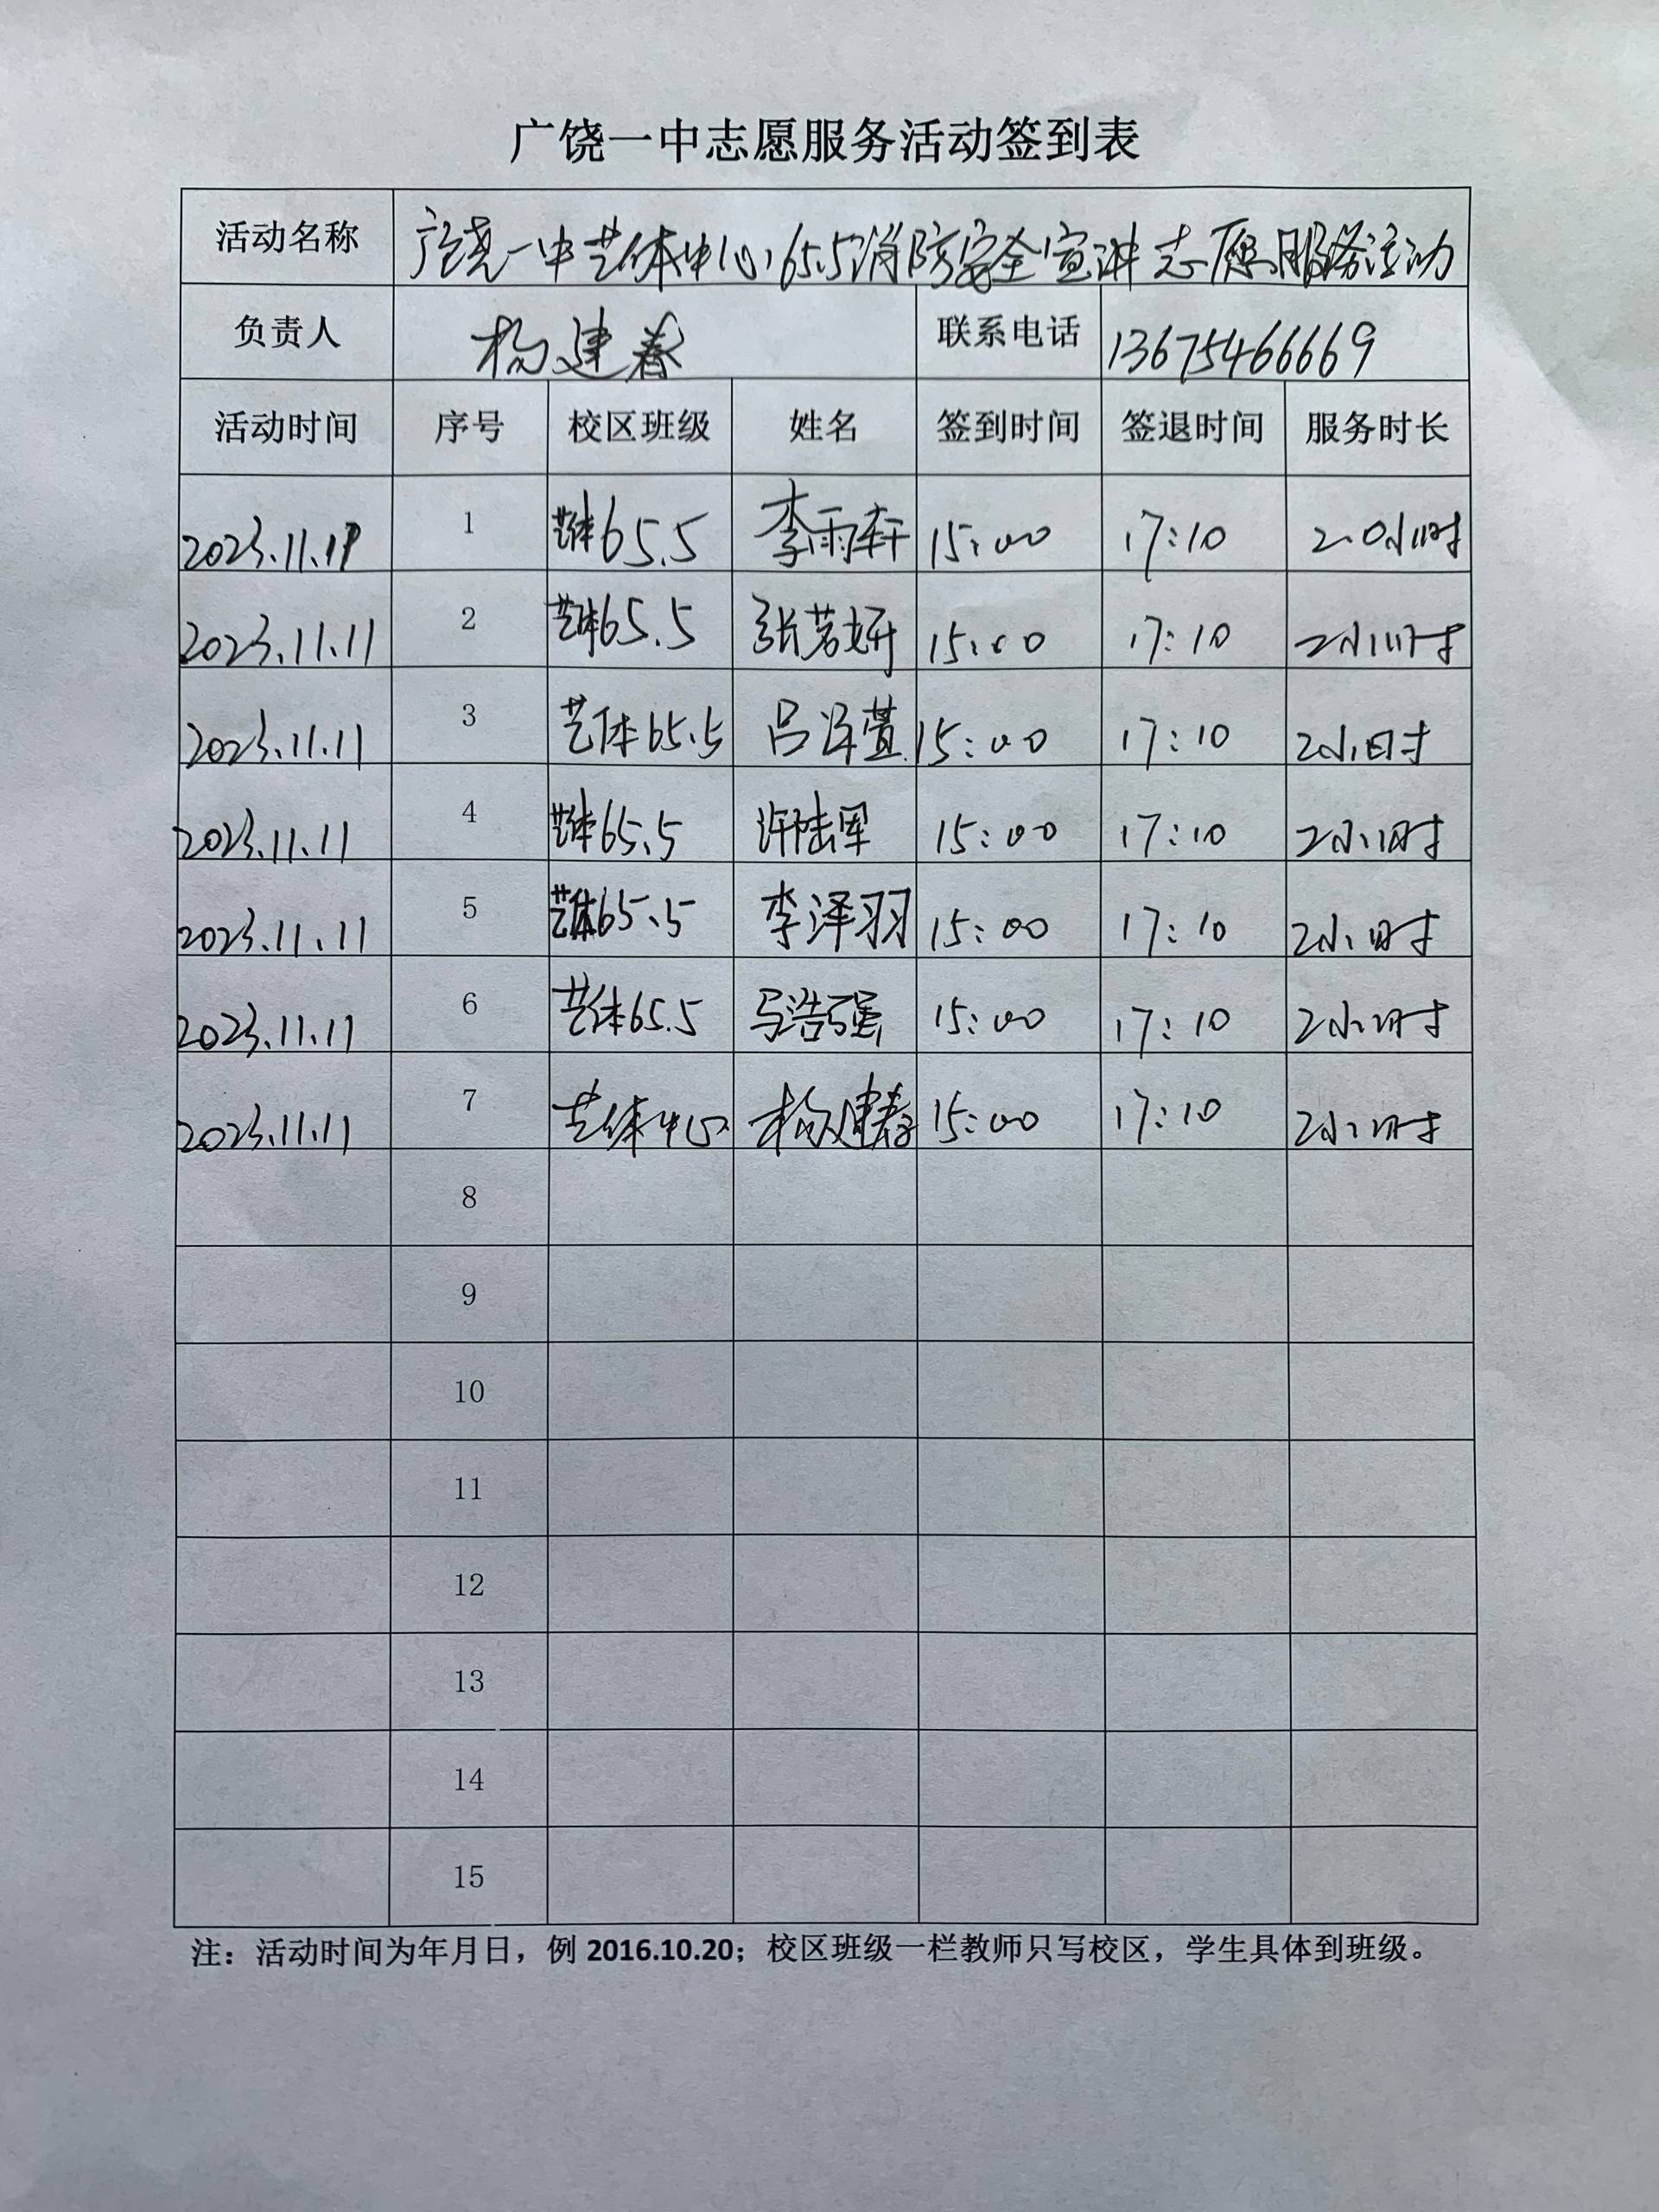 广饶一中志愿服务活动签到表
活动名称 广饶一中艺体中心65.5消防安全宣讲志愿服务活动
负责人 杨建春 联系电话 13675466669
活动时间 序号 校区班级 姓名 签到时间 签退时间 服务时长
2023.11.11 1 艺体65.5 李雨轩 15:00 17:10 2.0小时
2023.11.11 2 艺体65.5 张茗妍 15:00 17:10 2小时
2023.11.11 3 艺体65.5 吕泽萱 15:00 17:10 2小时
2023.11.11 4 艺体65.5 许陆军 15:00 17:10 2小时
2023.11.11 5 艺体65.5 李泽羽 15:00 17:10 2小时
2023.11.11 6 艺体65.5 马浩强 15:00 17:10 2小时
2023.11.11 7 艺体中心 杨建春 15:00 17:10 2小时
8
9
10
11
12
13
14
15
注：活动时间为年月日，例 2016.10.20；校区班级一栏教师只写校区，学生具体到班级。